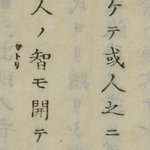 ケテ或人之ニ
人ノ智モ開テ
サトリ